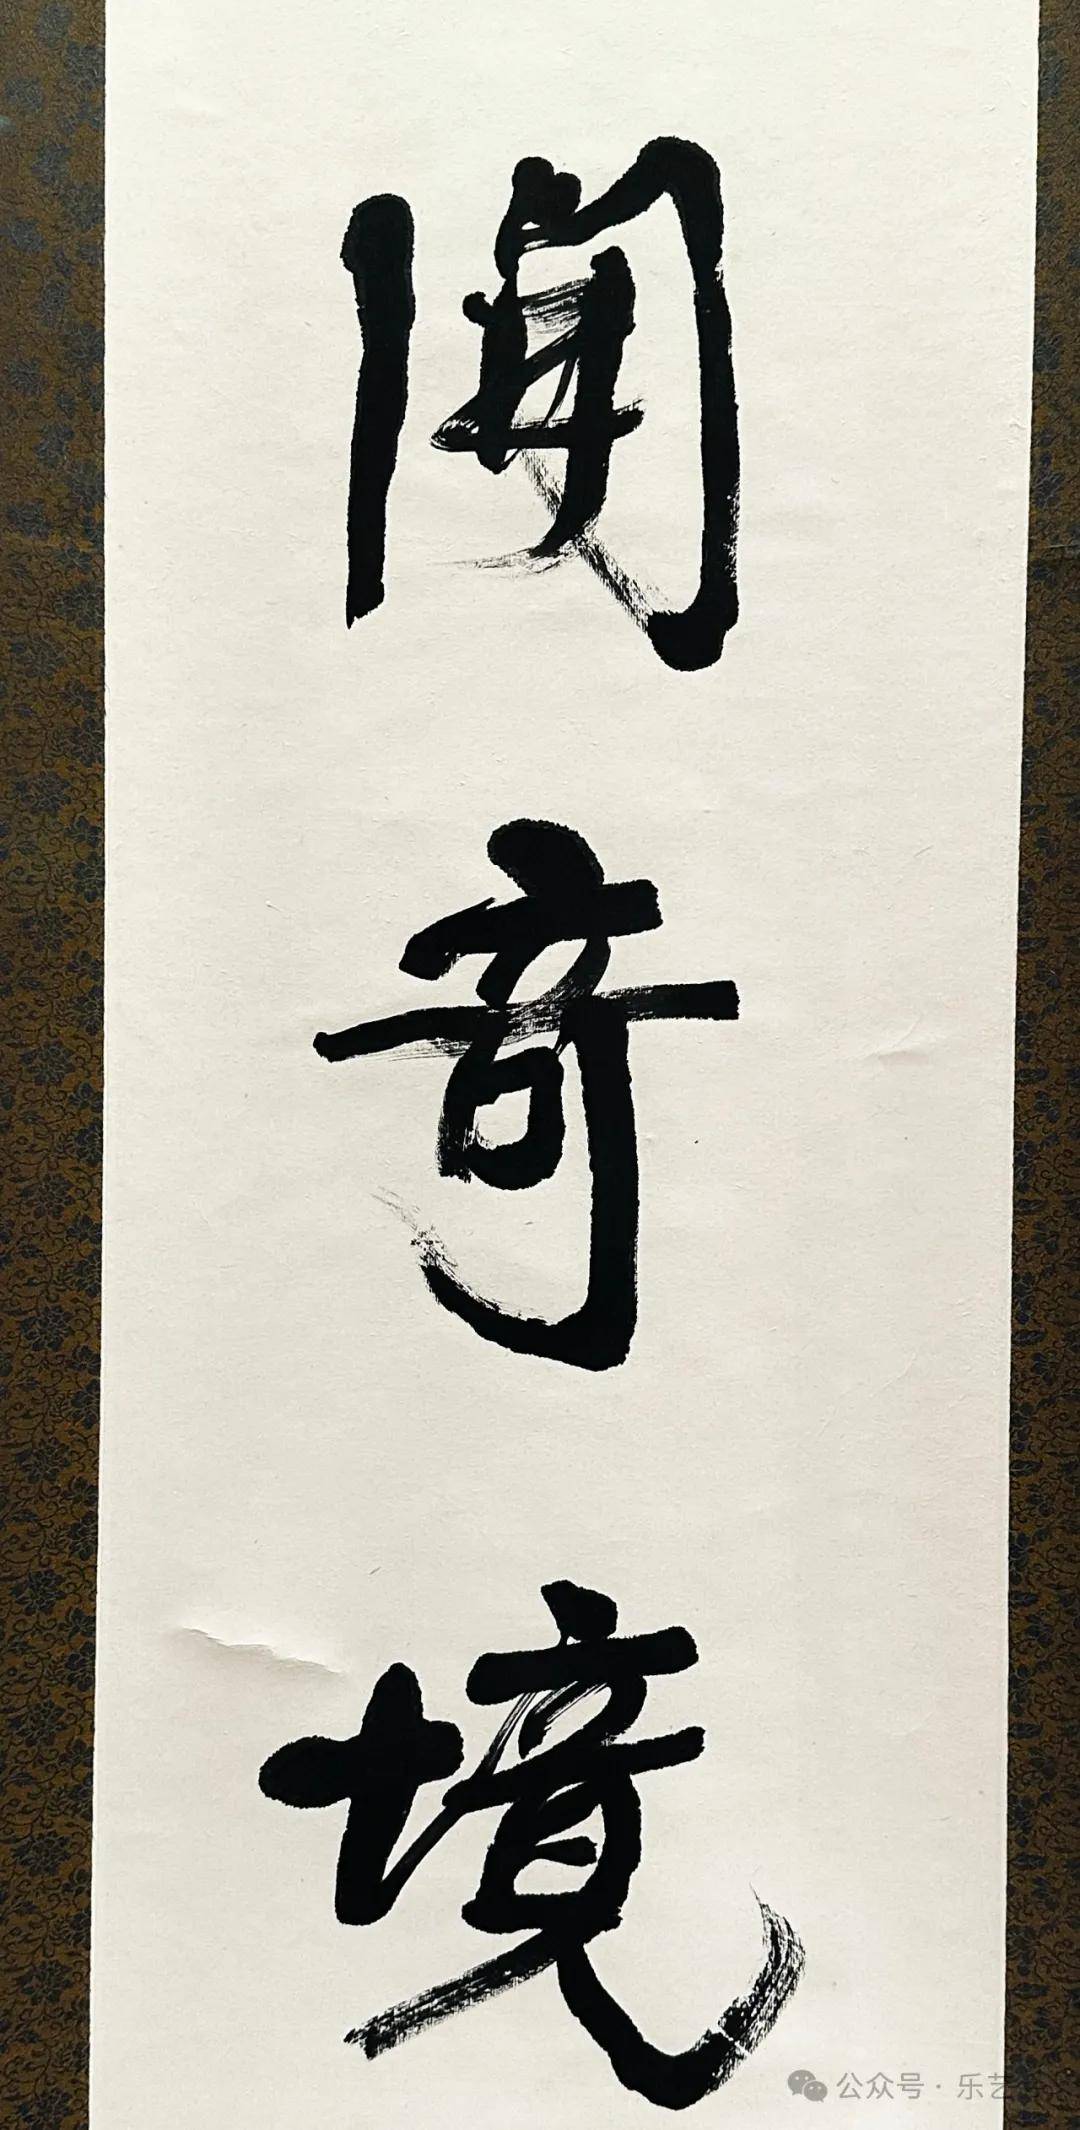 開奇境
公众号·乐艺